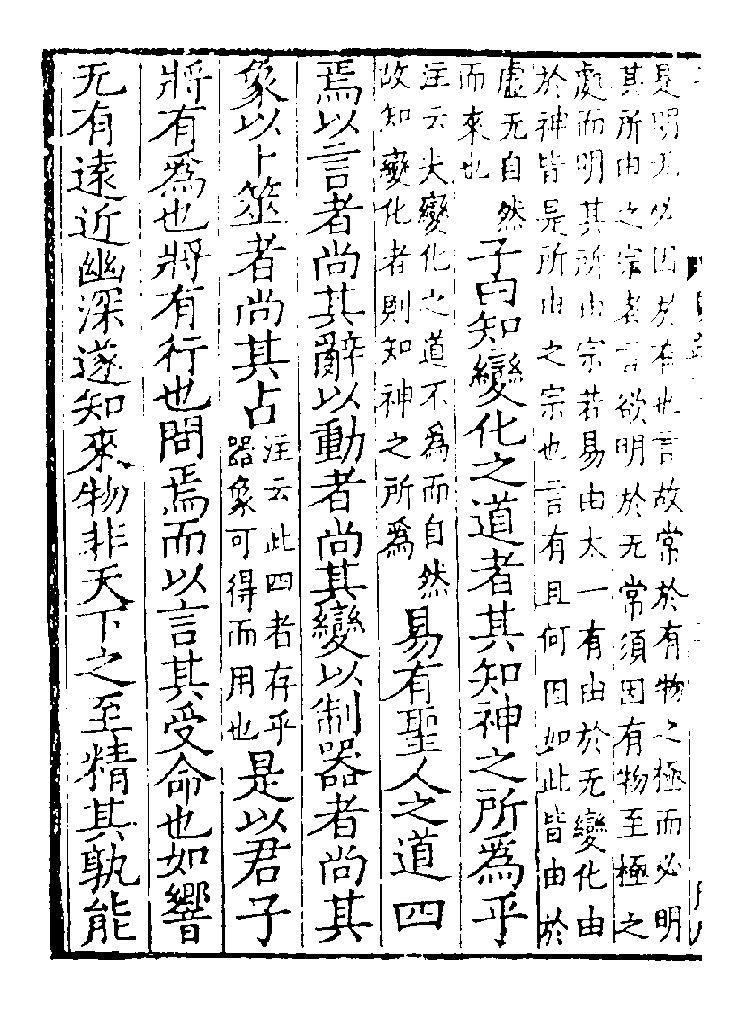 是明无必因於有也言故常於有物之極而必明
其所由之宗者言欲明於无常須因有物至極之
處而明其所由宗若易由太一有由於无變化由
於神皆是所由之宗也言有且何因如此皆由於
虛无自然
而來也
子曰知變化之道者其知神之所爲乎
注云夫變化之道不爲而自然
故知變化者則知神之所爲
易有聖人之道四
焉以言者尚其辭以動者尚其變以制器者尚其
象以卜筮者尚其占
注云此四者存乎
器象可得而用也
是以君子
將有爲也將有行也問焉而以言其受命也如響
无有遠近幽深遂知來物非天下之至精其孰能